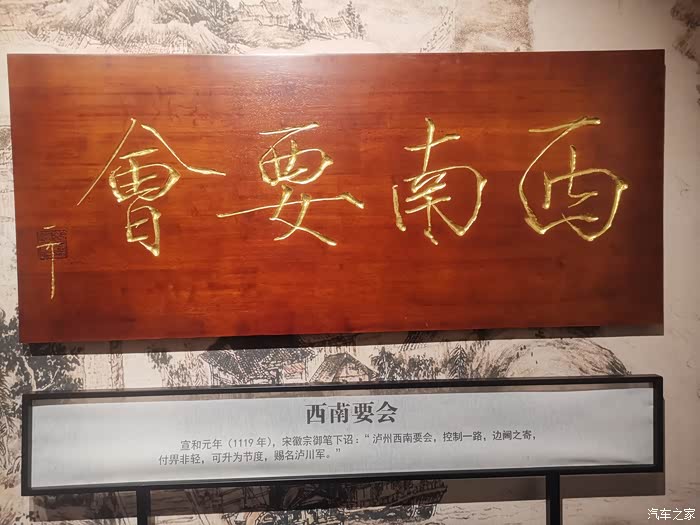 西南要會
西南要会
宣和元年（1119年），宋徽宗御笔下诏：“泸州西南要会，控制一路，边阃之寄，
付畀非轻，可升为节度，赐名泸川军。”
汽车之家